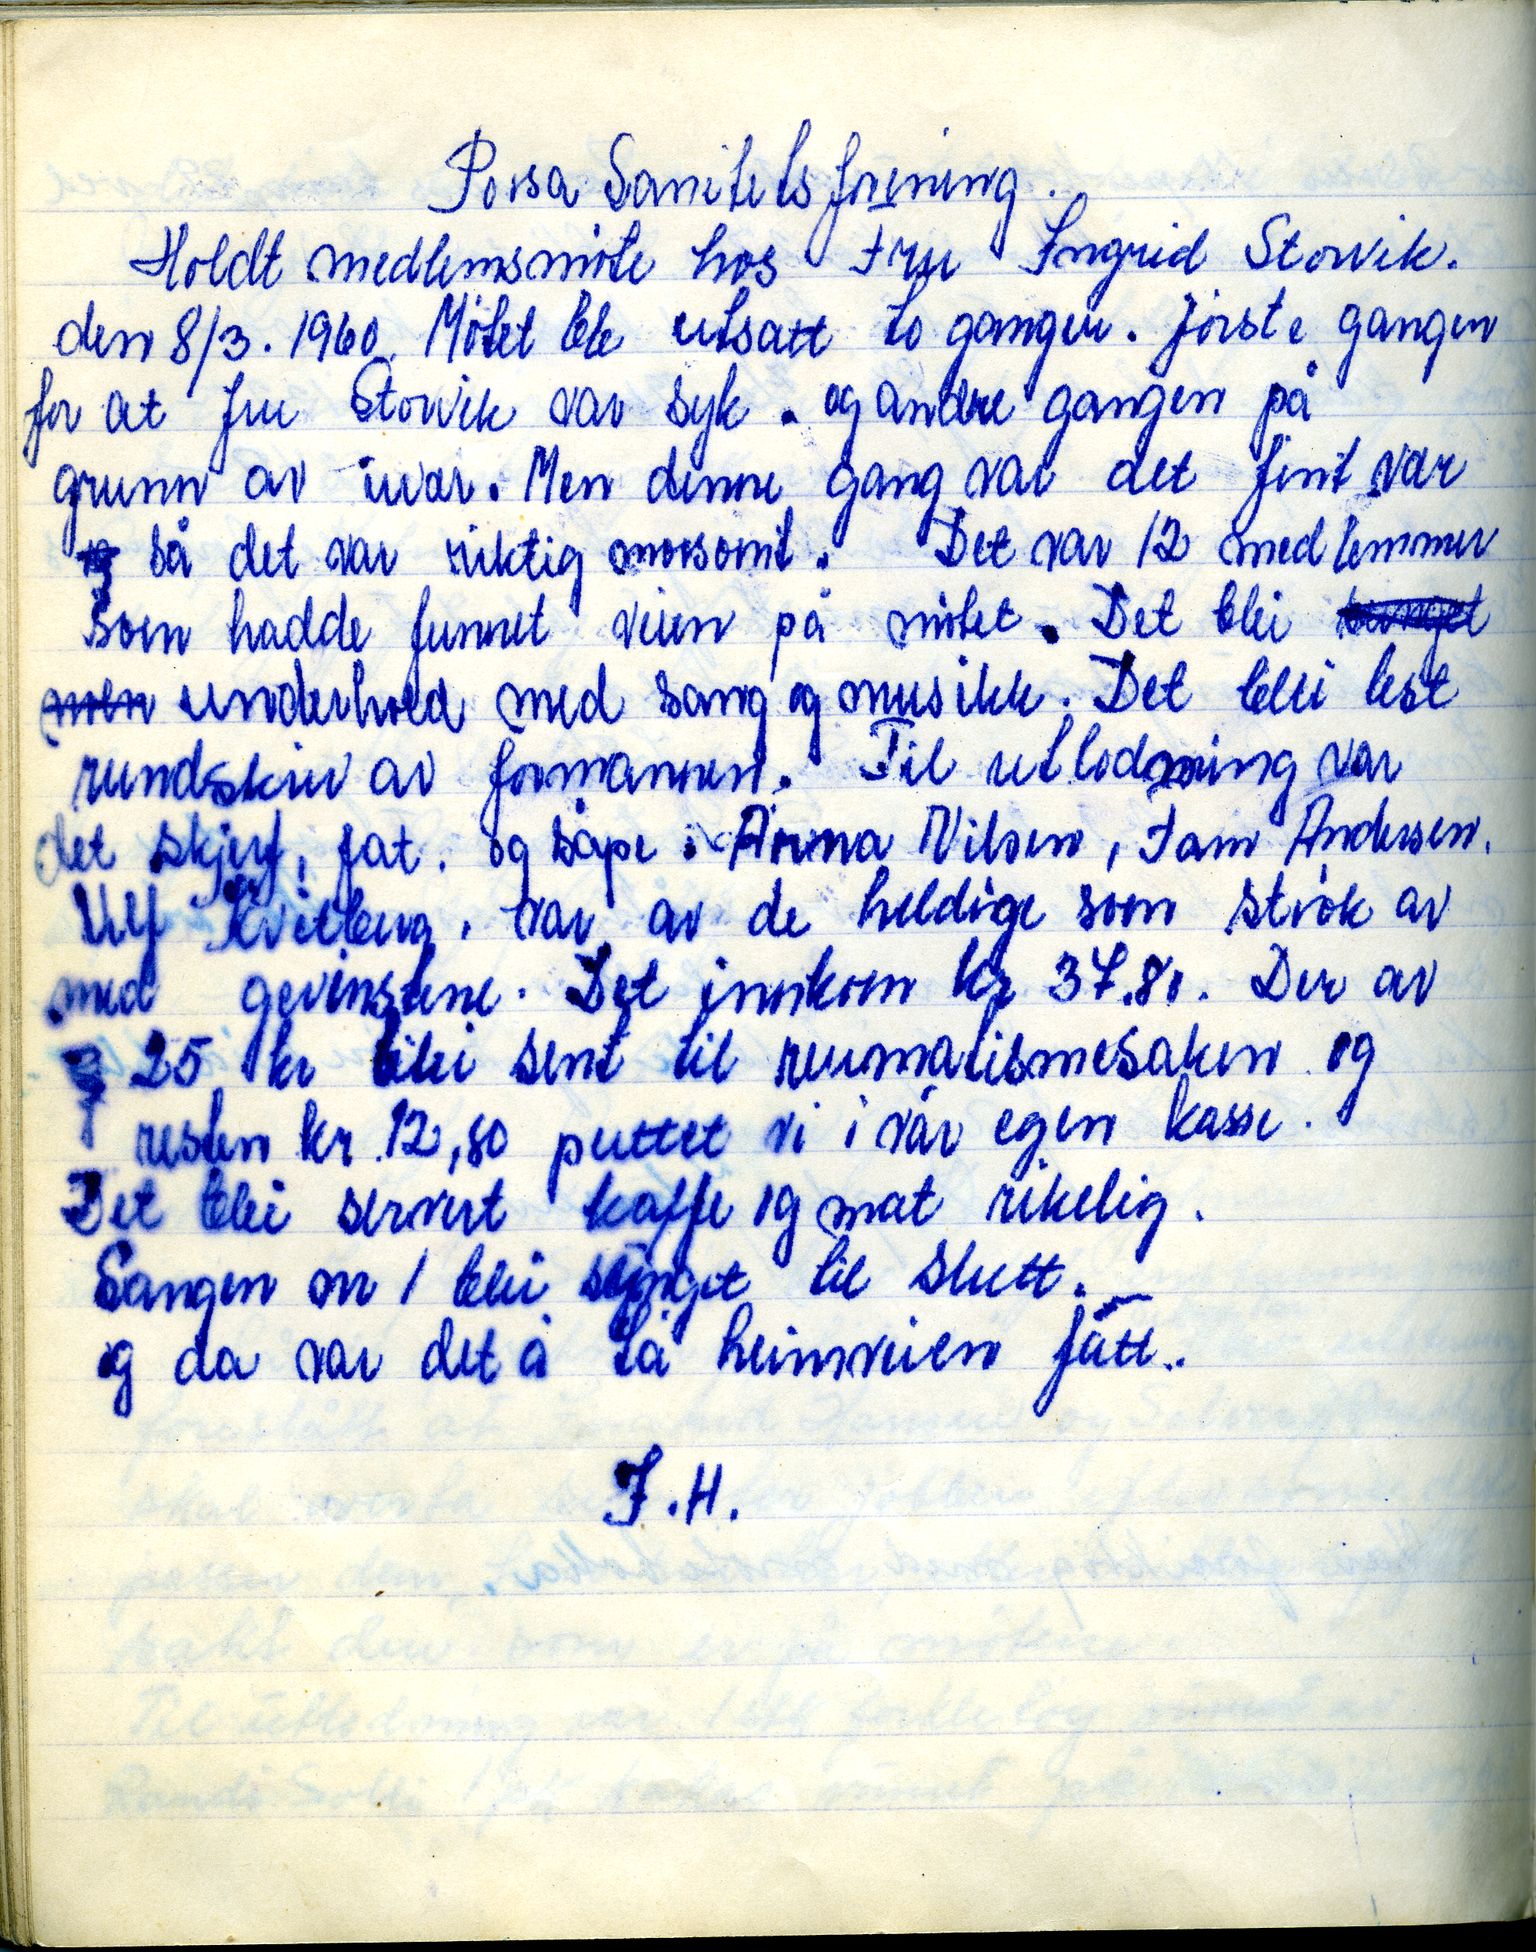 Porsa Sanitetsforening.
Holdt medlemsmøte hos Fru Ingrid Storvik.
den 8/3. 1960. Møtet ble utsatt to ganger. første gangen
for at fru Storvik var syk. og andre gangen på
grunn av uvær. Men denne gang var det fint vær
så det var riktig morsomt. Det var 12 medlemmer
som hadde funnet veien på møtet. Det blei sunget
noen underhold med sang og musikk. Det blei lest
rundskriv av formannen. Til utlodning var
det skjerf, fat. og såpe. Anna Nilsen, Tam Andersen.
Ulf Kvitberg. var av de heldige som strøk av
med gevinstene. Det innkom kr 37.80. Der av
25 kr blei sent til reumatismesaken og
resten kr. 12,80 puttet vi i vår egen kasse.
Det blei servert kaffe og mat rikelig.
Sangen nr 1 blei synget til slutt.
og da var det å ta heimveien fatt..
I.H.